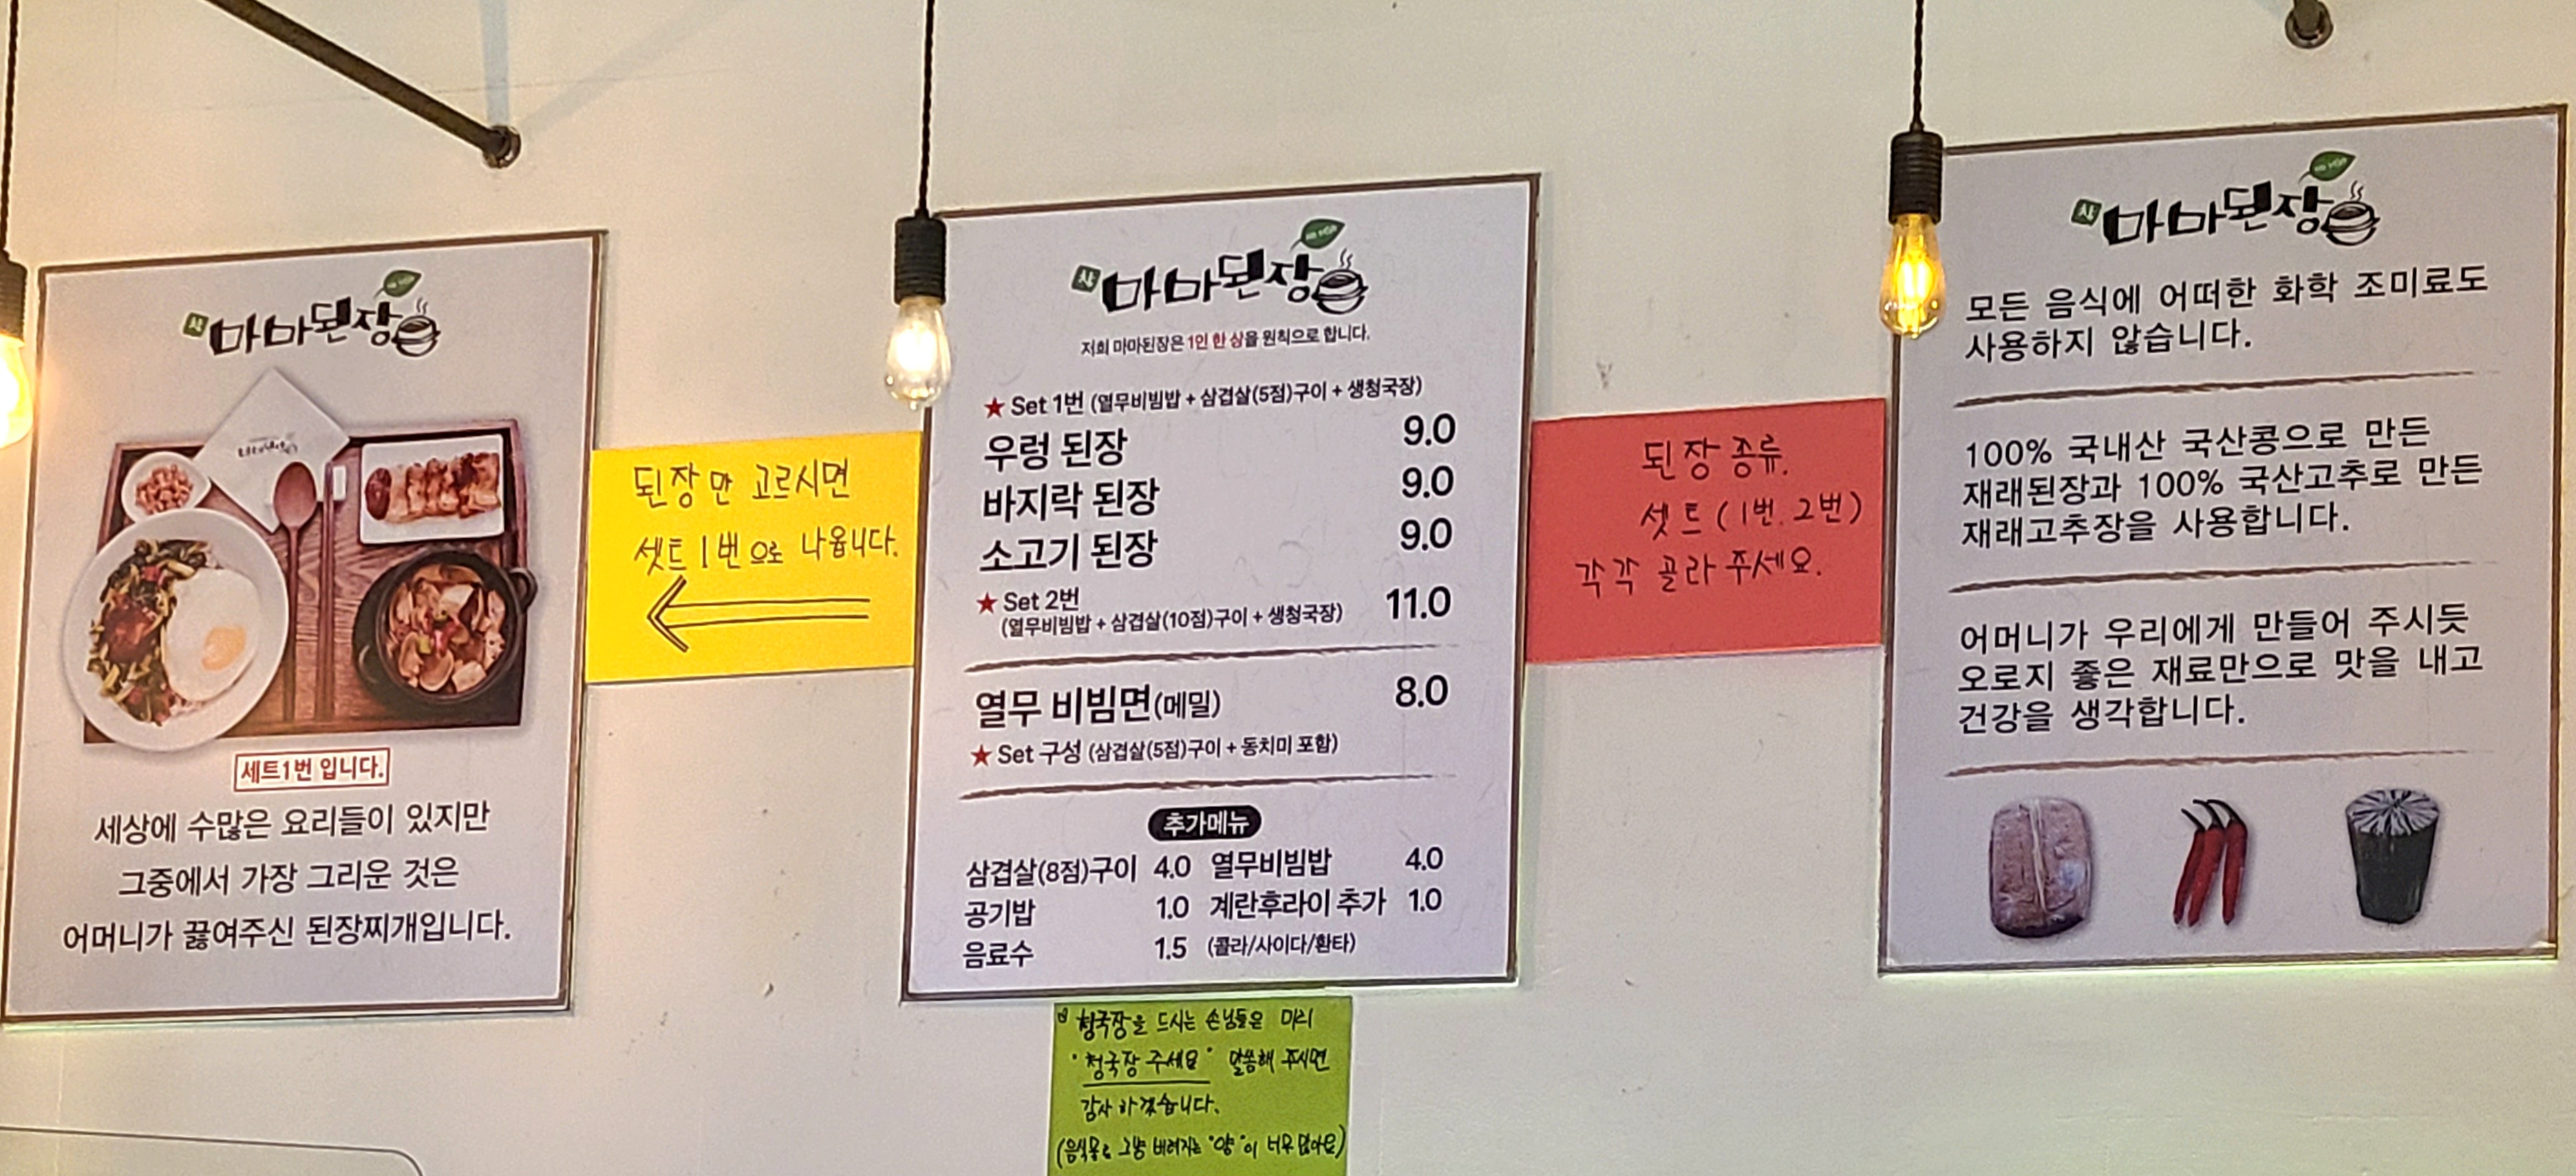 참 마마된장
세트1번 입니다.
세상에 수많은 요리들이 있지만
그중에서 가장 그리운 것은
어머니가 끓여주신 된장찌개입니다.
된장만 고르시면
셋트 1번으로 나옵니다.
마마된장
저희 마마된장은 1인 한 상을 원칙으로 합니다.
★ Set 1번 (열무비빔밥 + 삼겹살(5점)구이 + 생청국장)
우렁 된장 9.0
바지락 된장 9.0
소고기 된장 9.0
★ Set 2번 11.0
(열무비빔밥 + 삼겹살(10점)구이 + 생청국장)
열무 비빔면(메밀) 8.0
★ Set 구성 (삼겹살(5점)구이 + 동치미 포함)
추가메뉴
삼겹살(8점)구이 4.0 열무비빔밥 4.0
공기밥 1.0 계란후라이 추가 1.0
음료수 1.5 (콜라/사이다/환타)
청국장을 드시는 손님들은 미리
"청국장 주세요" 말씀해 주시면
감사하겠습니다.
(음식물로 그냥 버려지는 "양"이 너무 많아요)
된장 종류.
셋트 (1번. 2번)
각각 골라 주세요.
마마된장
모든 음식에 어떠한 화학 조미료도
사용하지 않습니다.
100% 국내산 국산콩으로 만든
재래된장과 100% 국산고추로 만든
재래고추장을 사용합니다.
어머니가 우리에게 만들어 주시듯
오로지 좋은 재료만으로 맛을 내고
건강을 생각합니다.